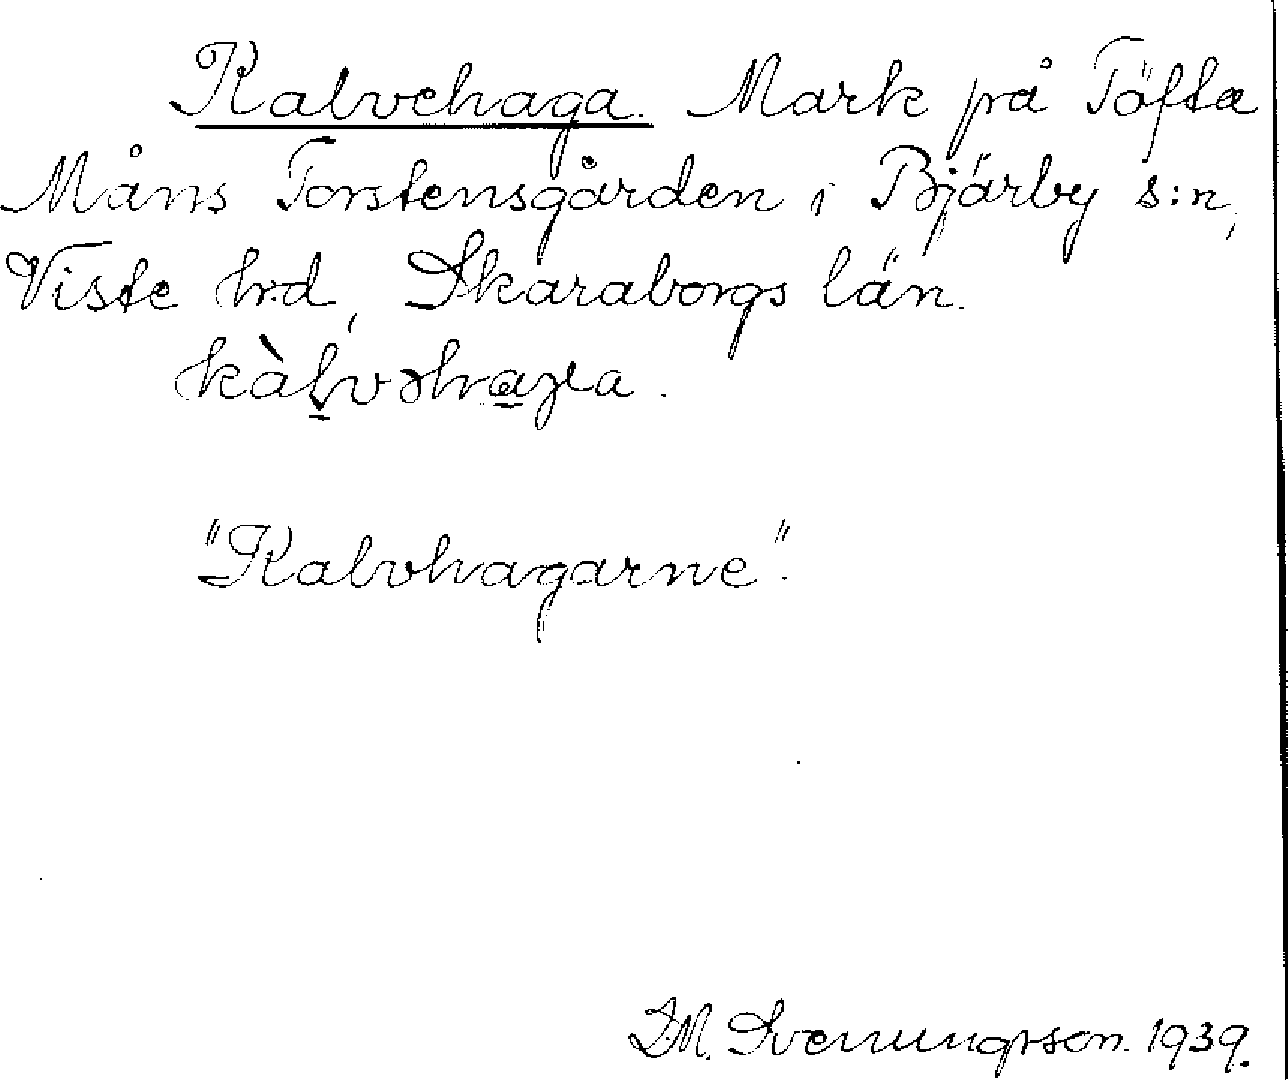 Kalvehaga. Mark på Töfta
Måns Torstensgården i Bjärby s:n,
Viste hrd, Skaraborgs län.
kàl̠vəha̠ga.
"Kalvhagarne".
I.M. Svenungsson. 1939.